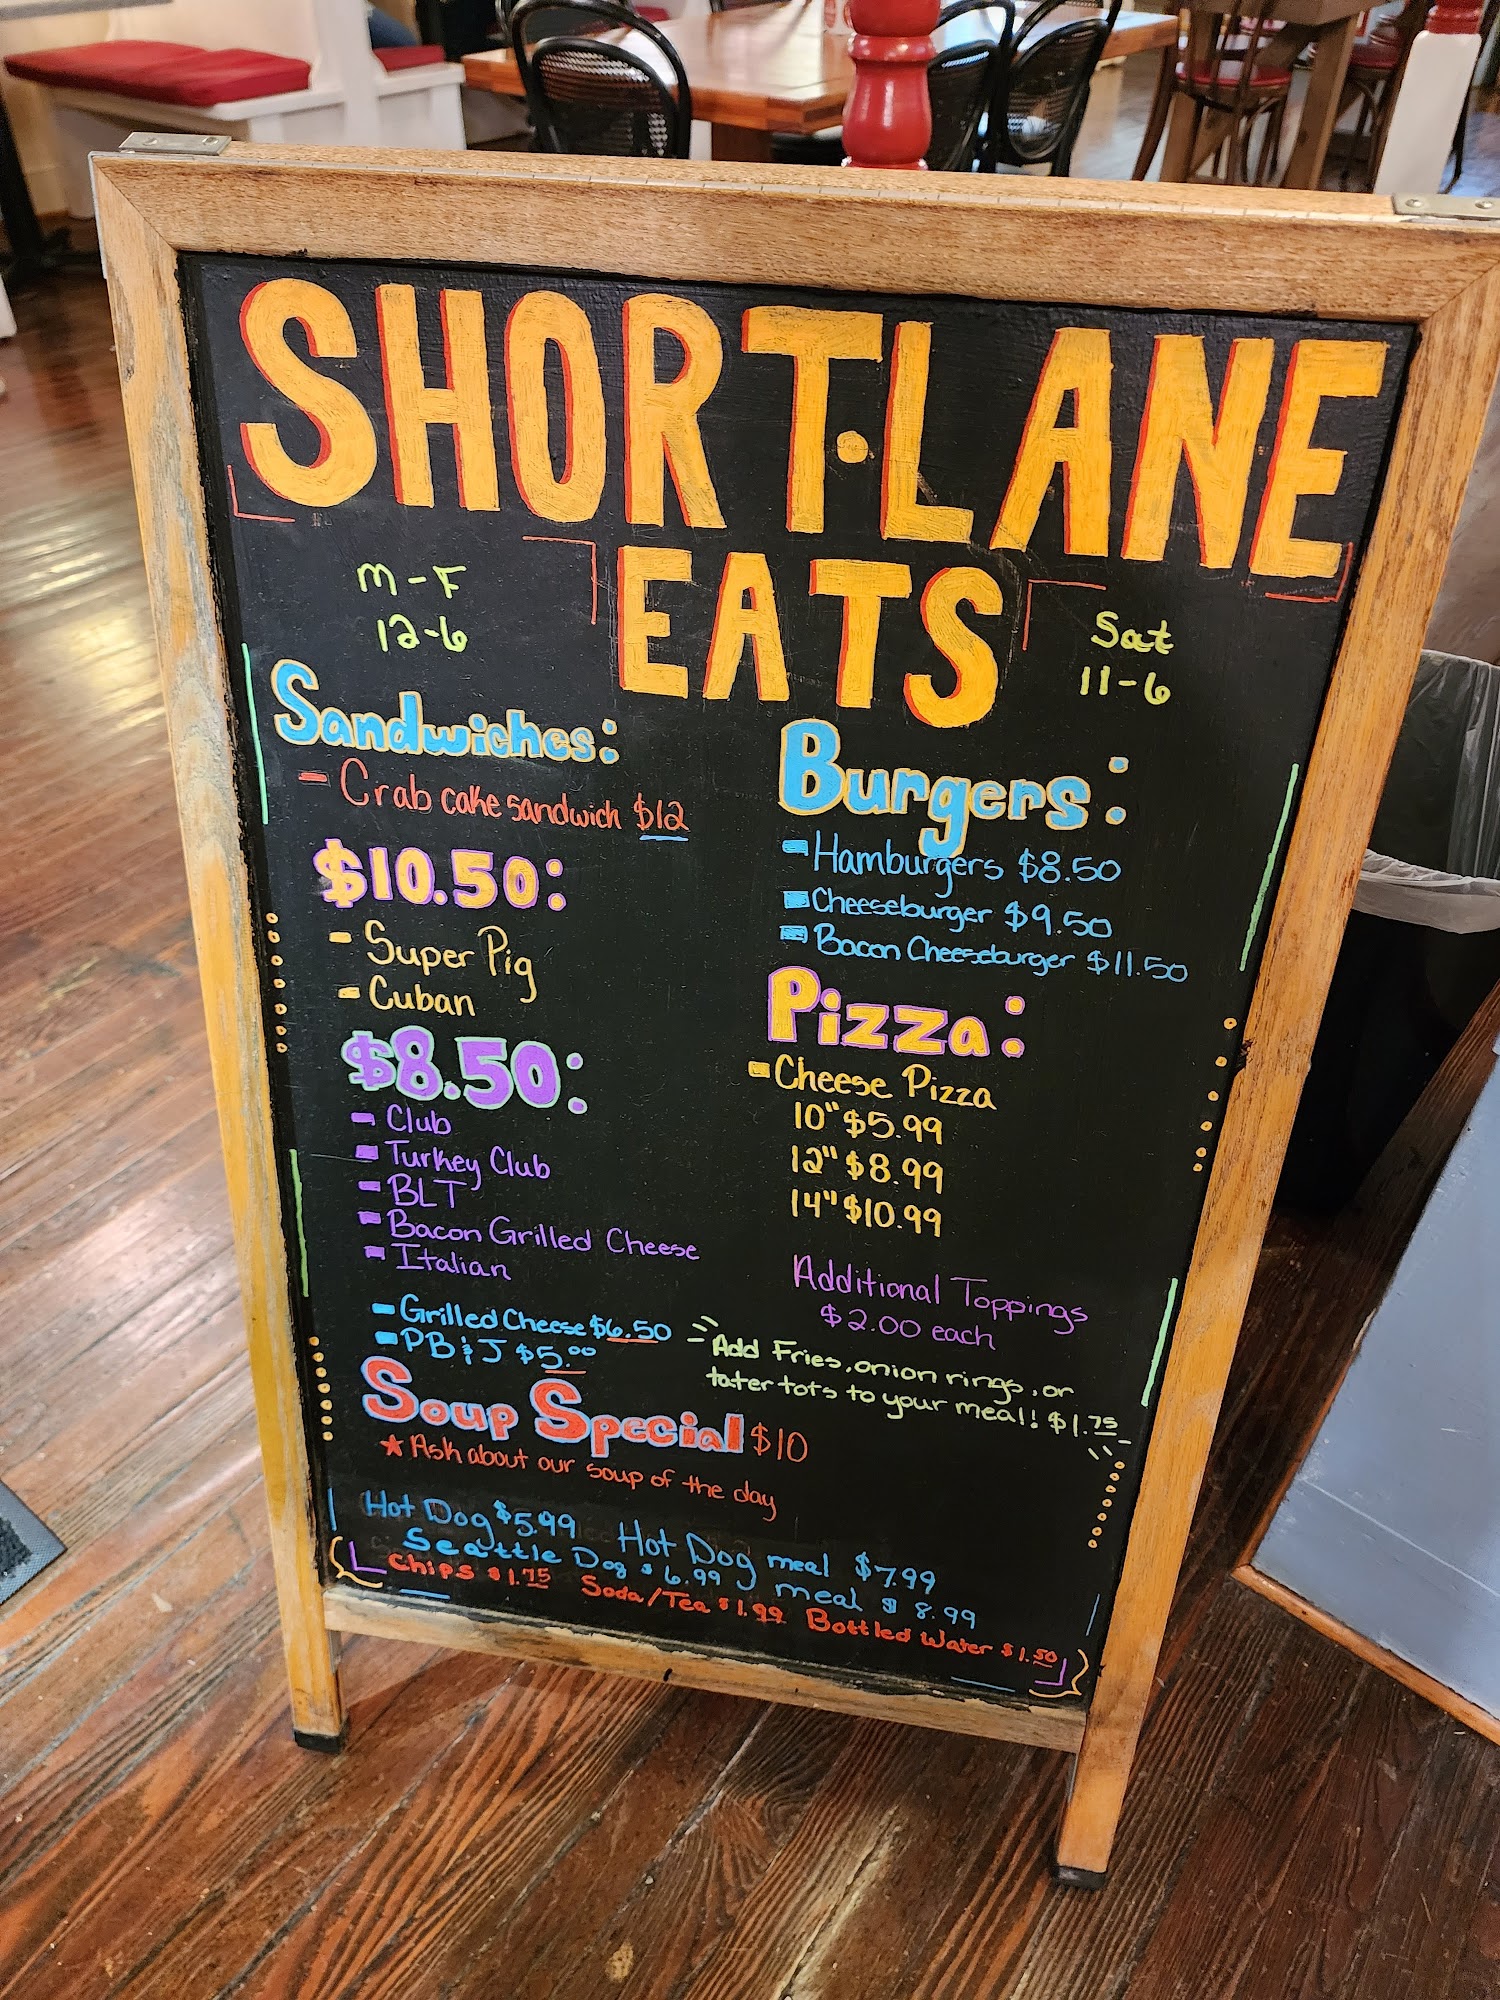 SHORT·LANE
EATS
M-F
12-6
Sat
11-6
Sandwiches:
- Crab cake sandwich $12
$10.50:
- Super Pig
- Cuban
$8.50:
- Club
- Turkey Club
- BLT
- Bacon Grilled Cheese
- Italian
- Grilled Cheese $6.50
- PB & J $5.00
Soup Special $10
★ Ask about our soup of the day
Burgers:
- Hamburgers $8.50
- Cheeseburger $9.50
- Bacon Cheeseburger $11.50
Pizza:
- Cheese Pizza
10" $5.99
12" $8.99
14" $10.99
Additional Toppings
$2.00 each
Add Fries, onion rings, or
tater tots to your meal! $1.75
Hot Dog $5.99 Hot Dog meal $7.99
Seattle Dog $6.99 meal $8.99
Chips $1.75 Soda/Tea $1.99 Bottled Water $1.50